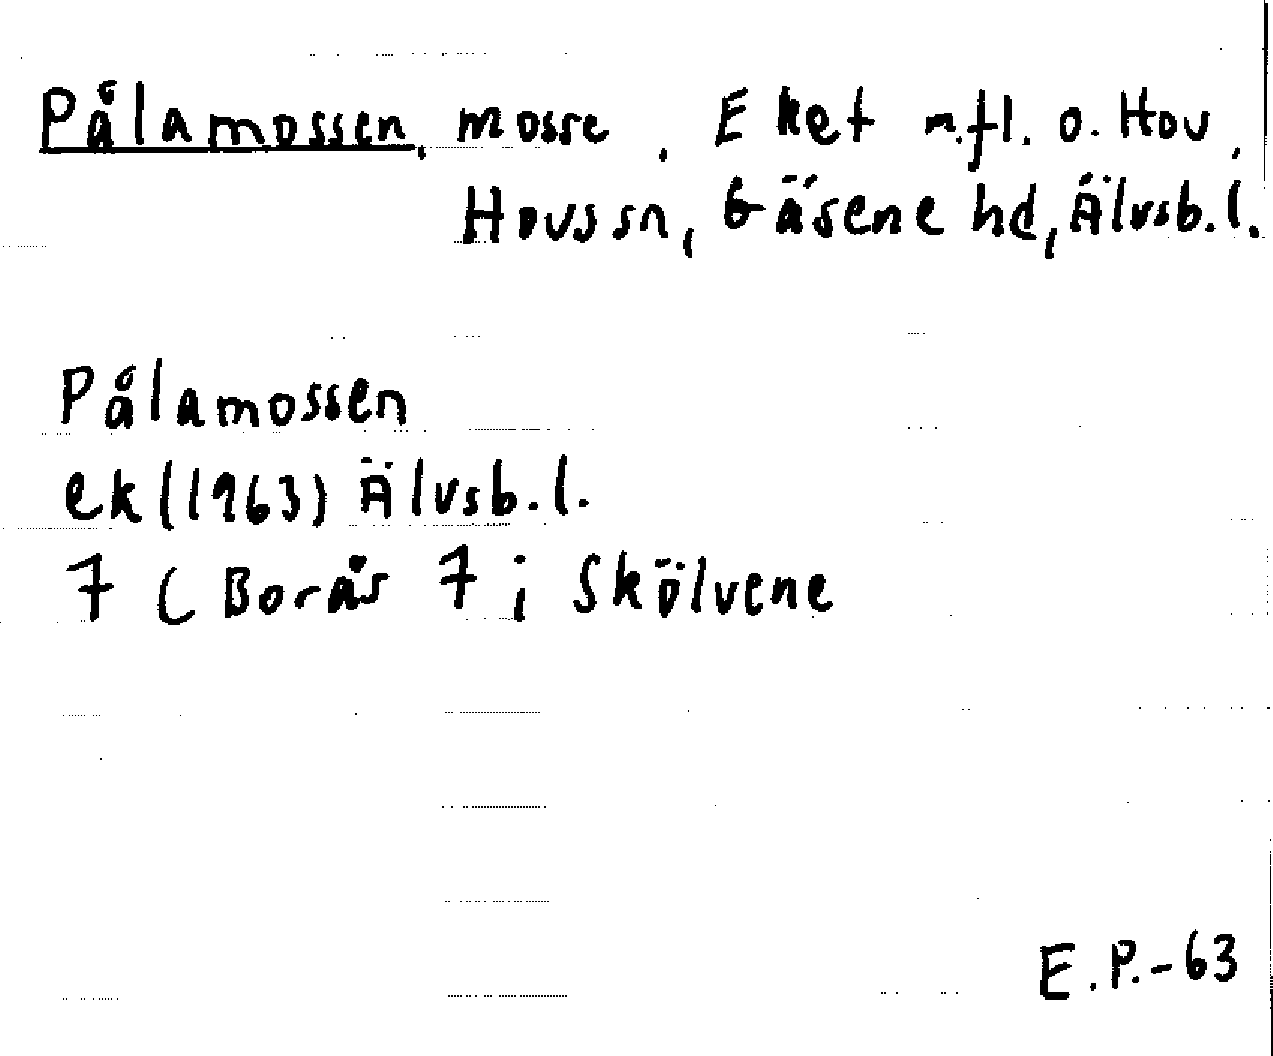 Pålamossen, mosse. Eket m.fl. o. Hov,
Hovs sn, Gäsene hd, Älvsb. l.
Pålamossen
ek (1963) Älvsb. l.
7 (Borås 7; Skölvene
E.P.-63